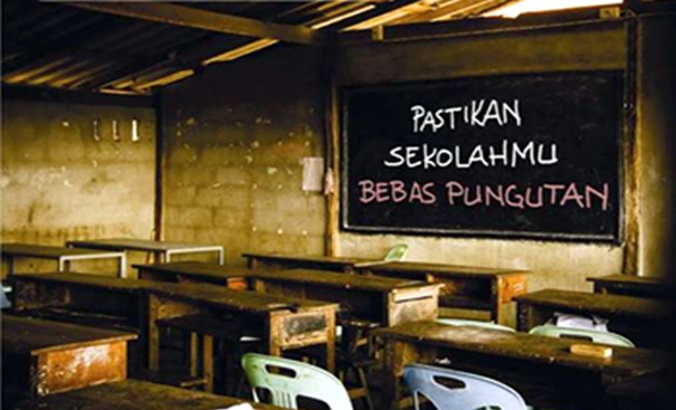 PASTIKAN
SEKOLAHMU
BEBAS PUNGUTAN